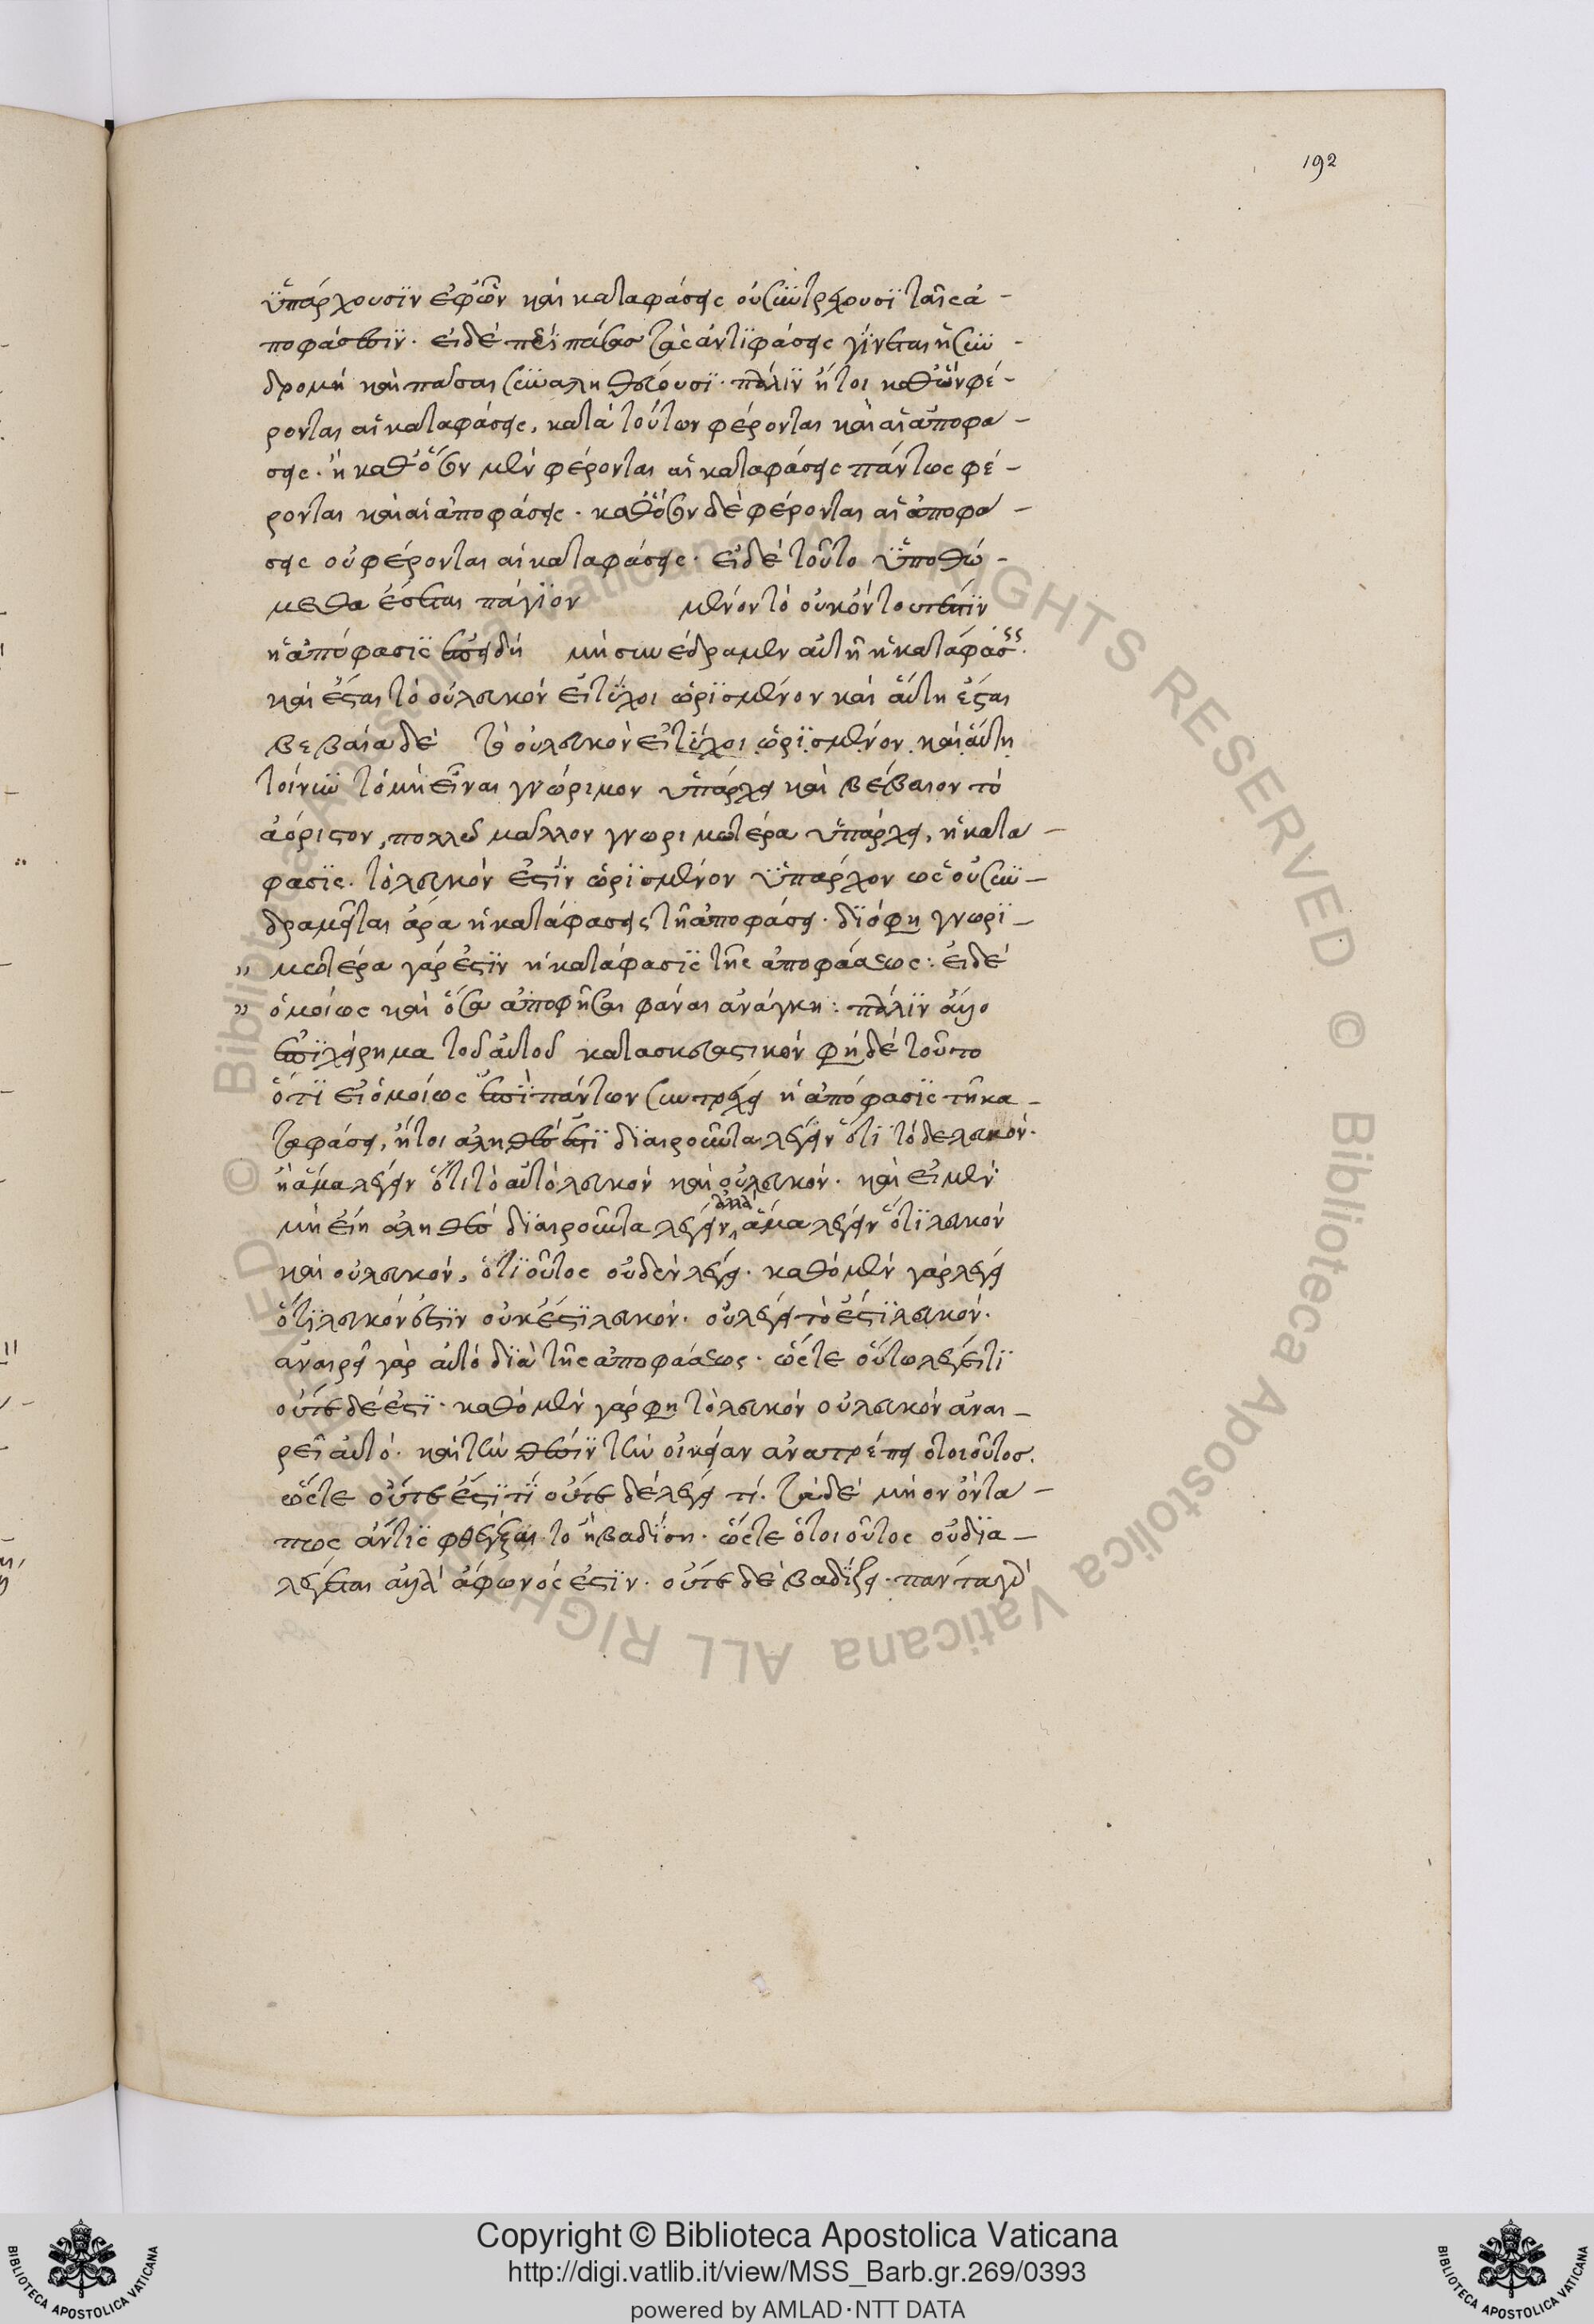 192
ὑπάρχουσϊν ἐφ' ὧν καὶ καταφάσεις οὐ συντρέχουσϊ ταῖς ἀ-
ποφάσεσϊν. εἰ δὲ περὶ πάσας τὰς ἀντϊφάσεις γίνεται ἡ συν-
δρομὴ καὶ πᾶσαι συναληθεύουσϊ. πάλϊν ἤτοι καθ' ὧν φέ-
ρονται αἱ καταφάσεις, κατὰ τούτων φέρονται καὶ αἱ ἀποφα-
σεις. ἢ καθ' ὅσων μὲν φέρονται αἱ καταφάσεις πάντως φέ-
ρονται καὶ αἱ ἀποφάσεις. καθ' ὅσων δὲ φέρονται αἱ ἀποφα-
σεις οὐ φέρονται αἱ καταφάσεις. εἰ δὲ τοῦτο ὑποθώ-
μεθα ἔσται πάγϊον μὲν ὂν τὸ οὐκ ὂν
ἡ ἀπόφασϊς μὴ συνέδραμεν αὐτῇ ἡ κατάφασις.
καὶ ἔσται τὸ οὐ λευκὸν εἰ τύχοι ὡρϊσμένον καὶ αὕτη ἔσται
βεβαία δὲ τὸ οὐ λευκὸν εἰ τύχοι ὡρϊσμένον καὶ αὕτη
τοίνυν τὸ μὴ εἶναι γνώριμον ὑπάρχει καὶ βέβαιον τὸ
ἀόριστον, πολλῶ μᾶλλον γνωριμωτέρα ὑπάρχει, ἡ κατα-
φασϊς. τὸ λευκόν ἐστϊν ὡρϊσμένον ὑπάρχον ὡς οὐ συν-
δραμεῖται ἄρα ἡ κατάφασις τῇ ἀποφάσει. δϊό φη γνωρϊ-
" μωτέρα γάρ ἐστϊν ἡ κατάφασϊς τῆς ἀποφάσεως: εἰ δὲ
" ὁμοίως καὶ ὅσα ἀποφῆσαι φάναι ἀνάγκη: πάλϊν ἄλλο
ἐπϊχείρημα τοῦ αὐτοῦ κατασκευαστικόν φη δὲ τοῦτο
ὅτϊ εἰ ὁμοίως ἐπὶ πάντων συντρέχει ἡ ἀπόφασϊς τῇ κα-
ταφάσει, ἤτοι ἀληθές ἐστϊ δϊαιροῦντα λέγειν ὅτϊ τόδε λευκόν.
ἢ ἅμα λέγειν ὅτι τὸ αὐτὸ λευκὸν καὶ οὐ λευκόν. καὶ εἰ μὲν
μὴ εἴη ἀληθὲς δϊαιροῦντα λέγειν, ἀλλὰ ἅμα λέγειν ὅτϊ λευκὸν
καὶ οὐ λευκόν, ὅτϊ οὗτος οὐδὲν λέγει. καθὸ μὲν γὰρ λέγει
ὅτϊ λευκόν ἐστϊν οὐκ ἔστϊ λευκόν. οὐ λέγει τὸ ἔστϊ λευκόν.
ἀναιρεῖ γὰρ αὐτὸ δϊὰ τῆς ἀποφάσεως. ὥστε οὔτω λέγει τϊ
οὔτε δέ ἐστϊ. καθὸ μὲν γάρ φη τὸ λευκὸν οὐ λευκὸν ἀναι-
ρεῖ αὐτό. καὶ τὴν θέσϊν τὴν οἰκείαν ἀνατρέπει ὁ τοιοῦτος.
ὥστε οὔτε ἔστϊ τϊ οὔτε δὲ λέγει τϊ. τὰ δὲ μὴ ὂν ὄντα-
πως ἄν τϊς φθέγξαιτο ἢ βαδίσῃ. ὥστε ὁ τοιοῦτος οὐ δϊα-
λέγεται ἀλλ' ἄφωνός ἐστϊν. οὔτε δὲ βαδϊζει. πάντα γὰρ
Copyright © Biblioteca Apostolica Vaticana
http://digi.vatlib.it/view/MSS_Barb.gr.269/0393
powered by AMLAD·NTT DATA
BIBLIOTECA APOSTOLICA VATICANA
BIBLIOTECA APOSTOLICA VATICANA
© Biblioteca Apostolica Vaticana ALL RIGHTS RESERVED © Biblioteca Apostolica Vaticana ALL RIGHTS RESERVED